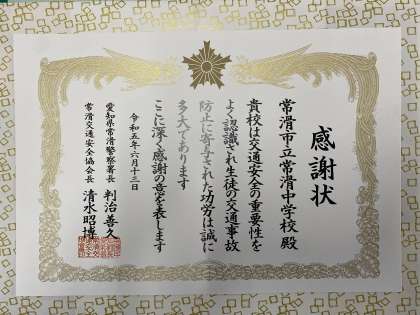 感謝状
常滑市立常滑中学校 殿
貴校は交通安全の重要性を
よく認識され生徒の交通事故
防止に寄与された功労は誠に
多大であります
ここに深く感謝の意を表します
令和五年六月十三日
愛知県常滑警察署長 判治善久
常滑交通安全協会長 清水昭博